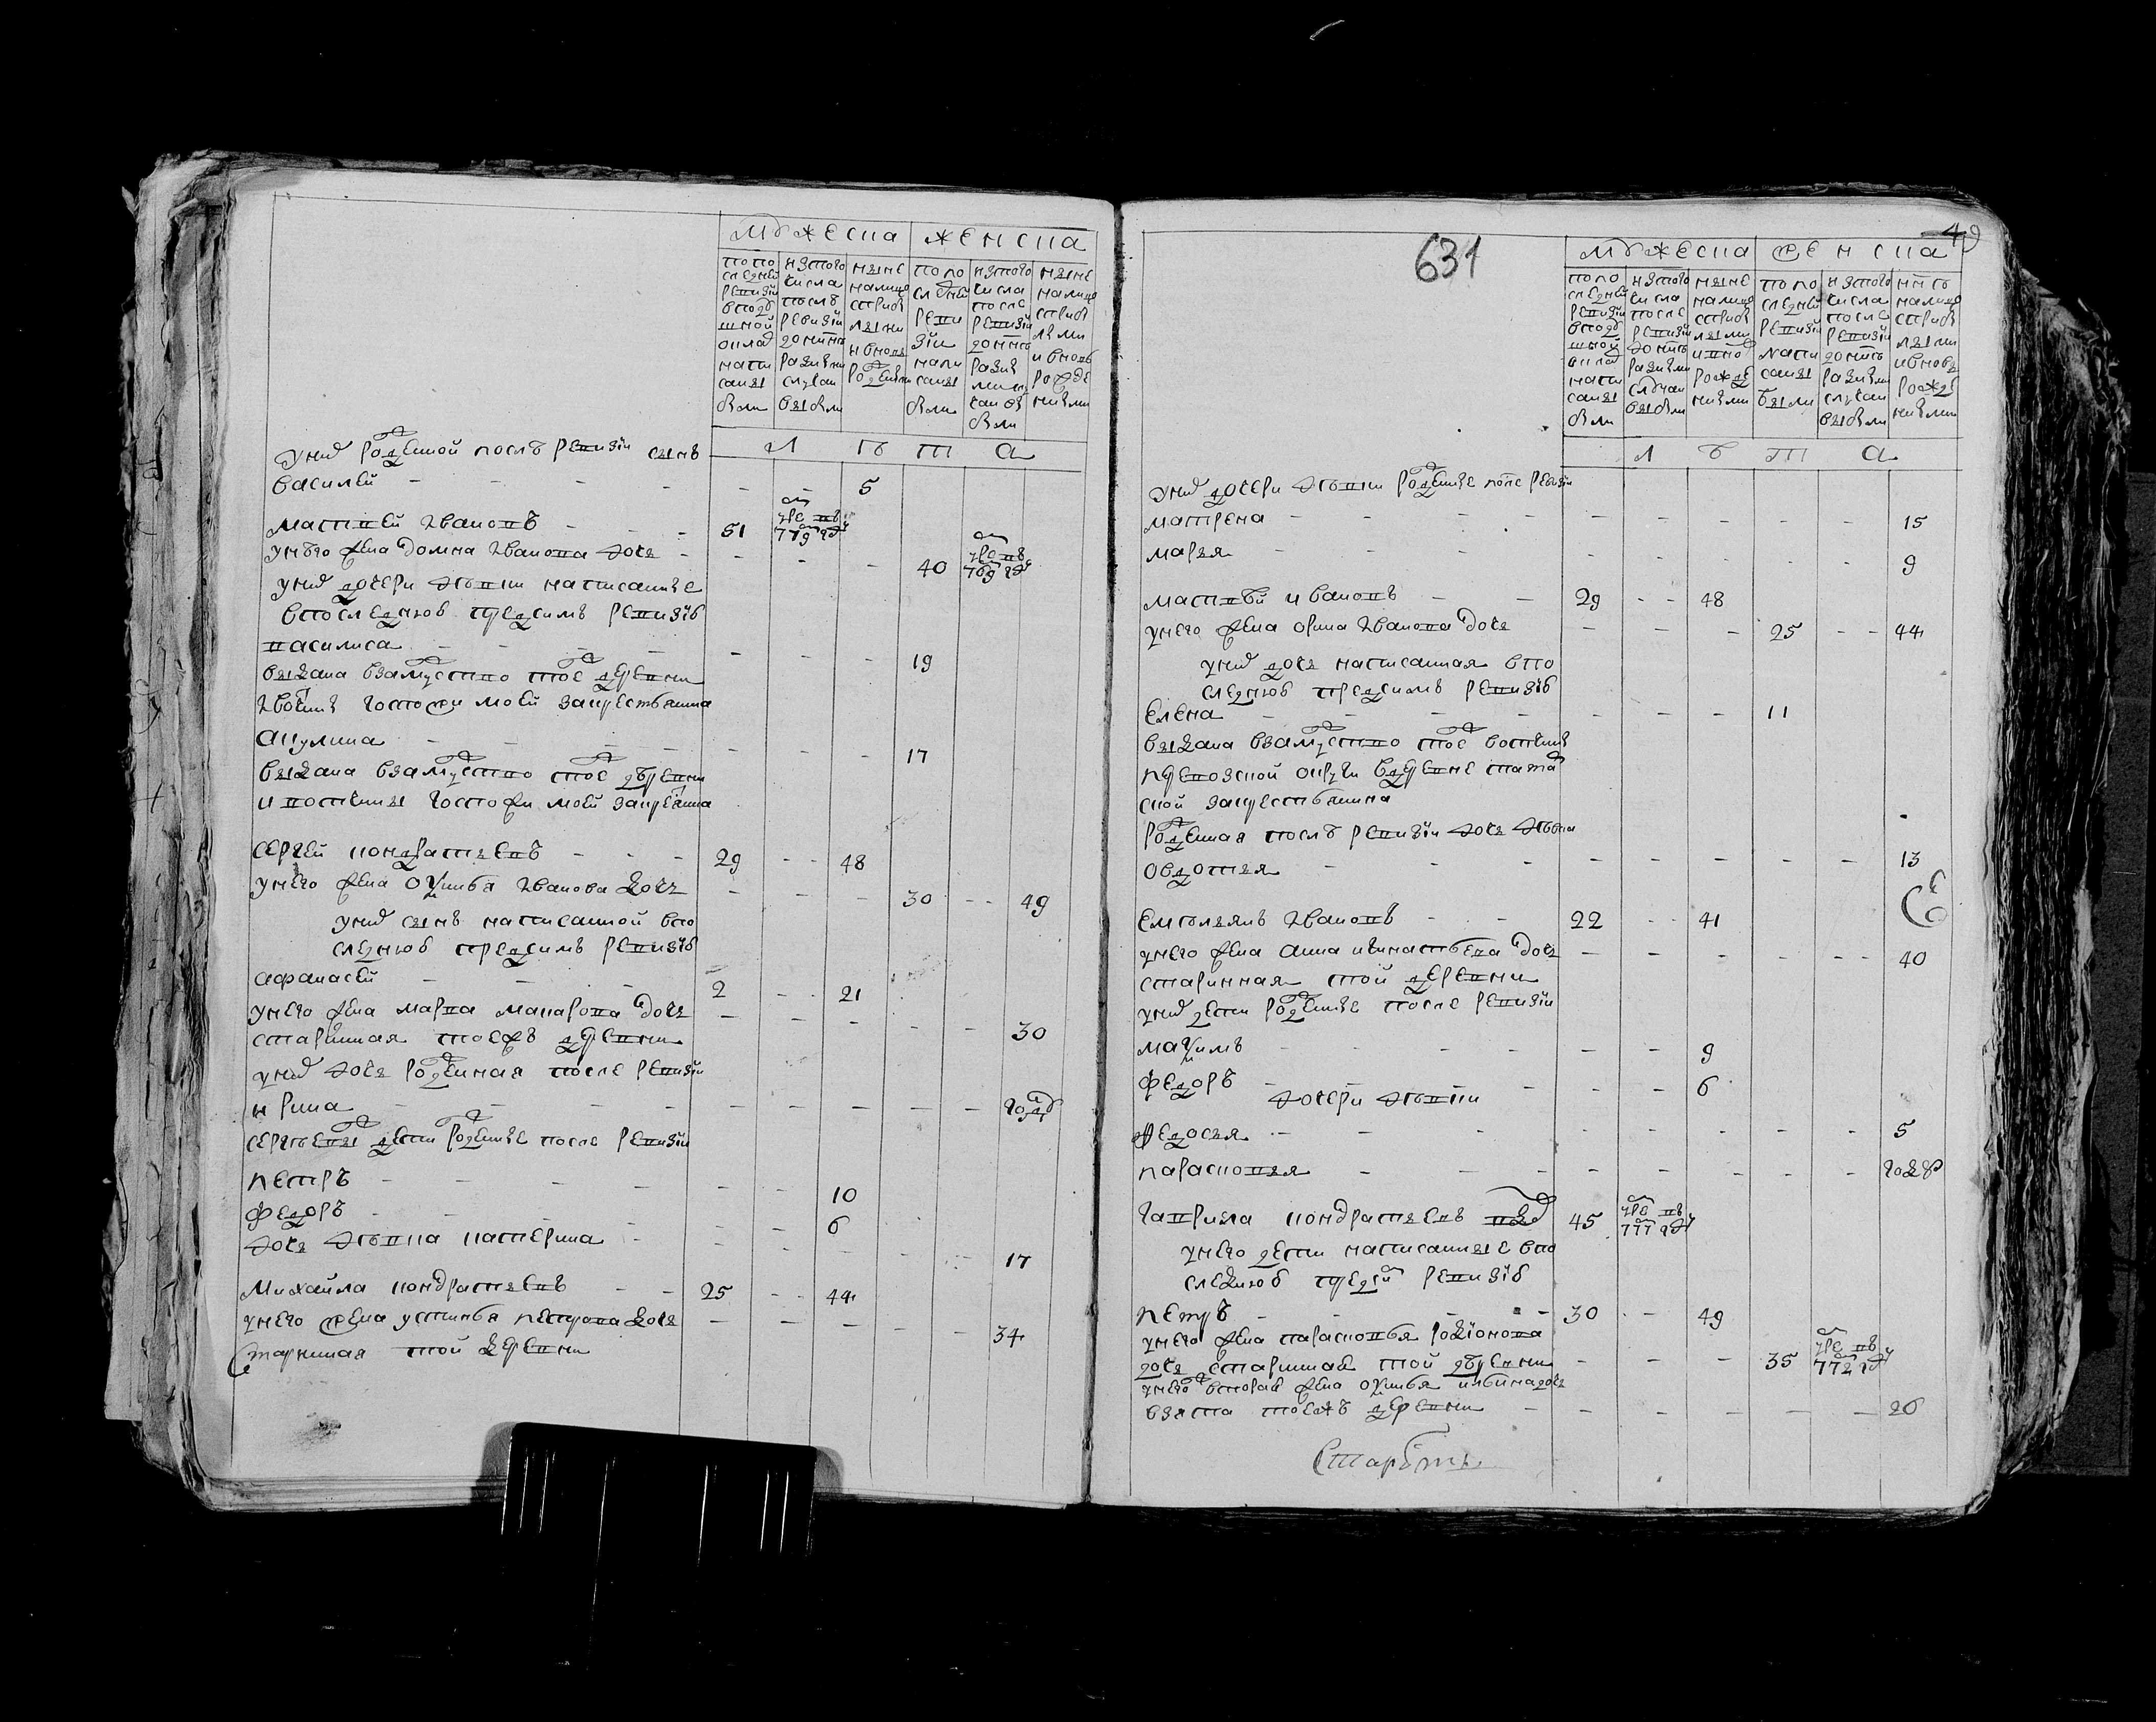 мужеска женска
по по
следней
ревизiи
в подуш
шной
оклад
напи
саны
были
из того
числа
послѣ
ревизiи
до ниня
разными
случаи
выбыли
ныне
на лицо
с прибы
лыми
и вновь
рожденными
по по
следней
реви
зiи
напи
саны
были
из того
числа
после
ревизiи
до ниня
разны
ми слу
чаи вы
были
ныне
на лицо
с прибы
лыми
и вновь
рожде
ными
л ѣ т а
у них рожденной послѣ ревизiи сынъ
василей - - 5
матвей ивановъ - 51 умре въ 779 году
у него жена домна иванова дочь - 40 умре въ 769 году
у них дочери девки написанные
в последнюю пред симъ ревизiю
василиса - 19
выдана в замуство тое ж деревни
вотчины госпожи моей за крестьянина
акулина - 17
выдана в замуство тое ж деревни
и вотчины госпожи моей за крестьянина
сергей кондратьевъ - 29 - 48
у него жена оксинья иванова дочь - 30 - 49
у них сынъ написанной в по
следнюю пред симъ ревизiю
афанасей - 2 - 21
у него жена марва макарова дочь
старинная тоежъ деревни - 30
у них дочь рожденная после ревизiи
ирина - годъ
сергѣевы дети рожденные после ревизiи
петръ - 10
федоръ - 6
дочь девка катерина - 17
михайла кондратьевъ - 25 - 44
у него жена устинья петрова дочь - 34
старинная той деревни
631
49
мужеска женска
по по
следней
ревизiи
в подуш
шной
оклад
напи
саны
были
из того
числа
после
ревизiи
до ниня
разными
случаи
выбыли
ныне
на лицо
с прибы
лыми
и вно
рожде
ными
по по
следней
ревизiи
напи
саны
были
из того
числа
после
ревизiи
до ниня
разными
случаи
выбыли
ннѣ
на лицо
с прибы
лыми
и вновь
рожде
ными
л ѣ т а
у них дочери девки рожденные после ревизiи
матрена - 15
марья - 9
матвѣй ивановъ - 29 - 48
у него жена орина иванова дочь - 25 - 44
у них дочь написанная в по
следнюю пред симъ ревизiю
елена - 11
выдана в замуство тое ж вотчины
в деревне
за крестьянина
рожденная послѣ ревизiи дочь девка
овдотья - 13
емельянъ ивановъ - 22 - 41
у него жена анна игнатьева дочь - 40
старинная той деревни
у них дети рожденные после ревизiи
максимъ - 9
федоръ - 6
дочери девки
федосья - 5
парасковья - годъ
гаврила кондратьевъ вд 45 умре въ 777 году
у него дети написанные в по
следнюю пред сим ревизiю
петръ - 30 - 49
у него жена парасковья родiонова
дочь старинная той деревни - 35 умре въ 772 году
у него вторая жена оксинья дочь
взята тоежъ деревни - 26